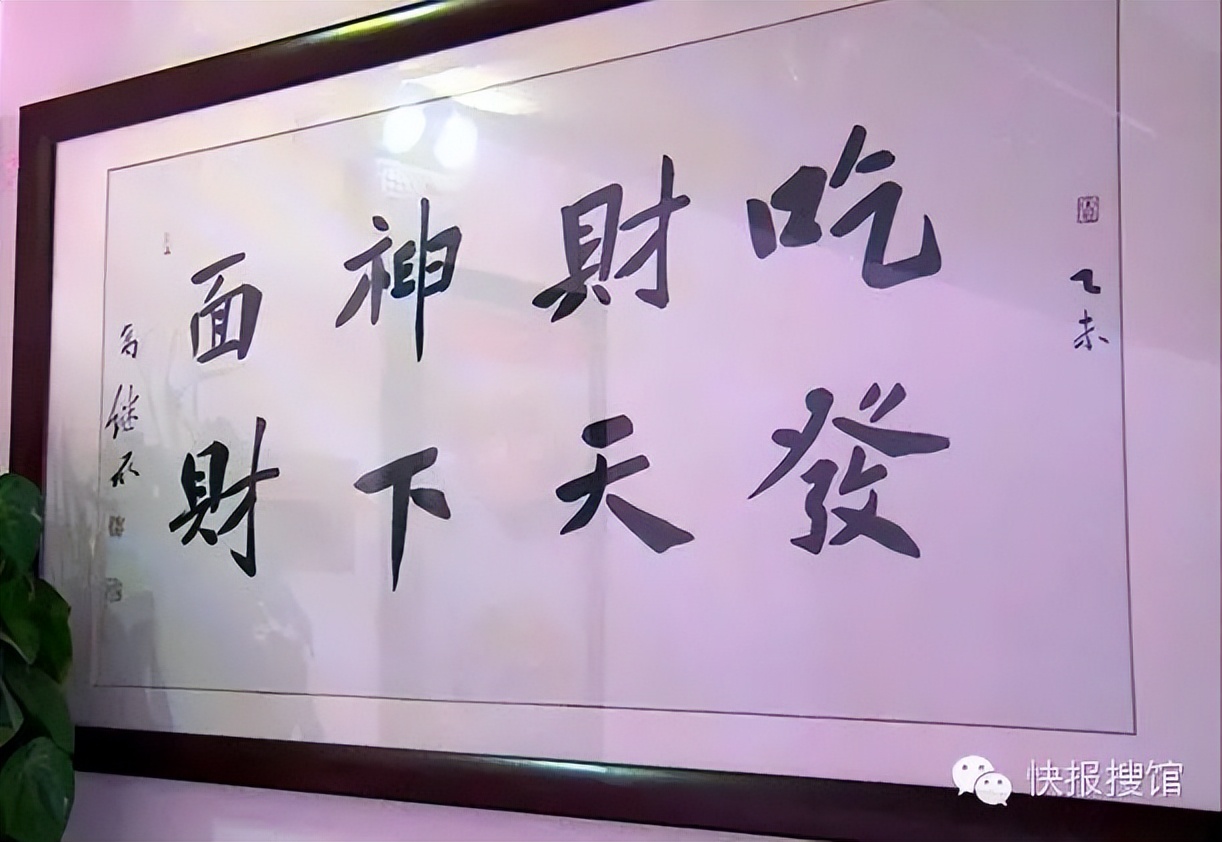 乙未
吃財神面
發天下財
高继
快报搜馆